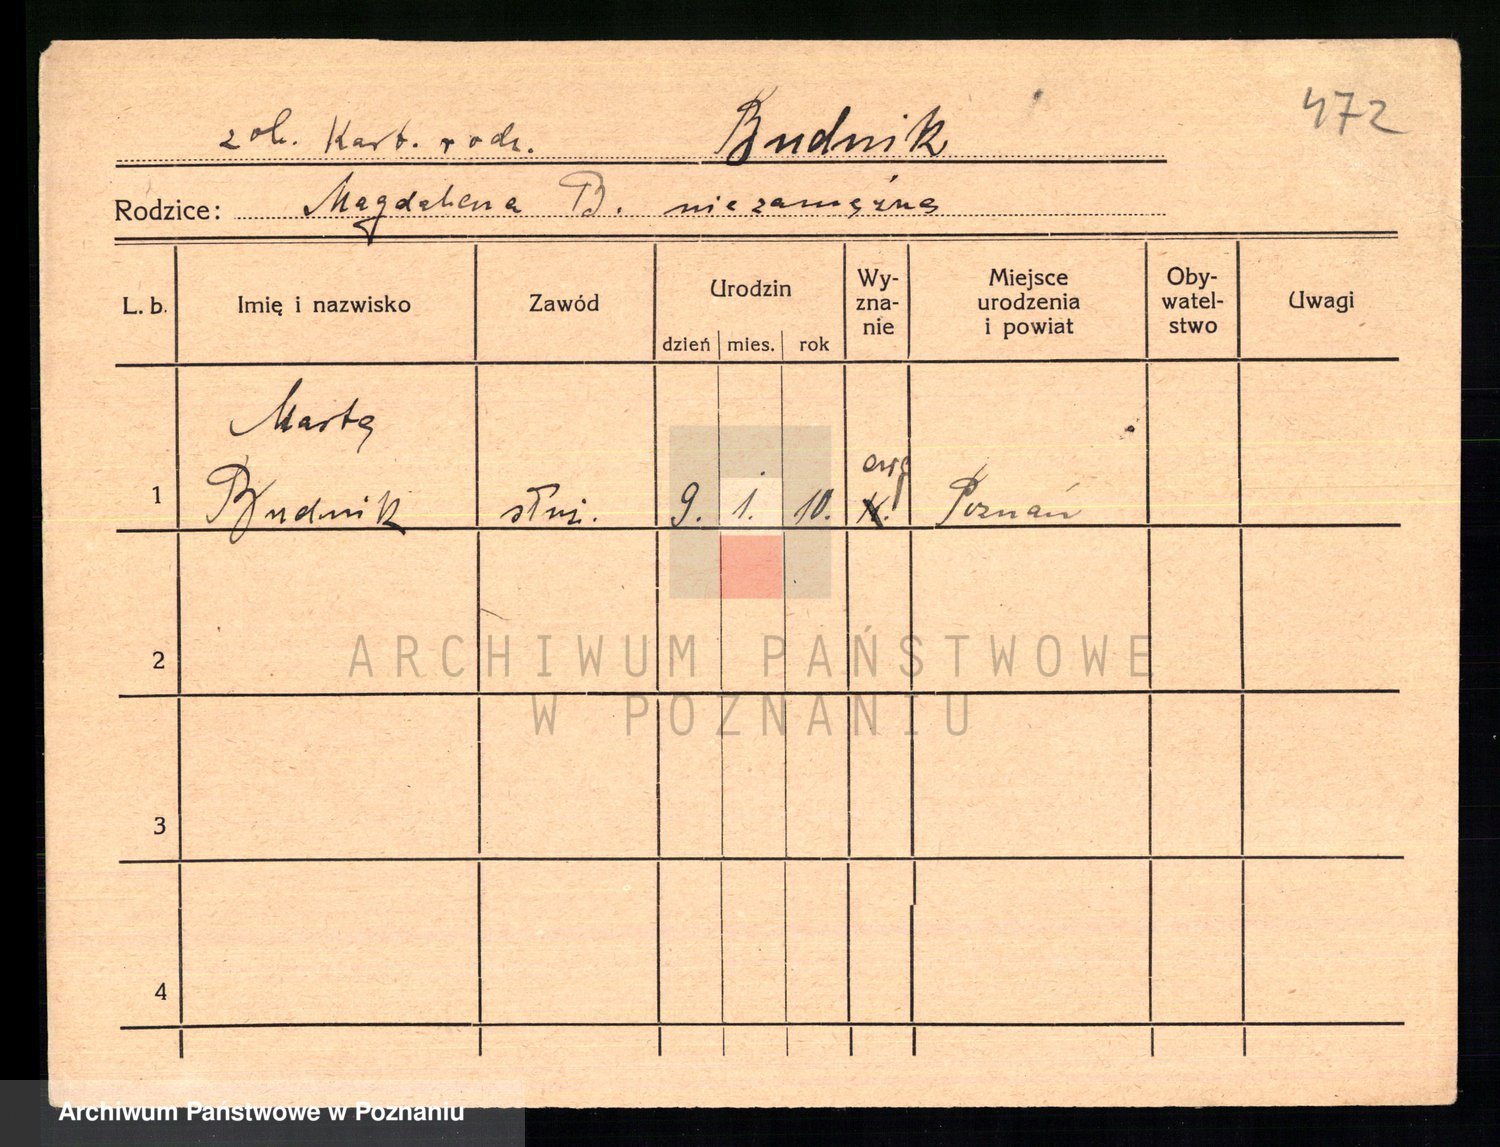 472
zob. Kart. rodz. Budnik
Rodzice: Magdalena B. niezamężna
L. b. Imię i nazwisko Zawód Urodzin Wy-zna-nie Miejsce urodzenia i powiat Oby-watel-stwo Uwagi
dzień mies. rok
Marta
ewg
1 Budnik służ. 9. 1. 10. K. Poznań
2
ARCHIWUM PAŃSTWOWE
W POZNANIU
3
4
Archiwum Państwowe w Poznaniu